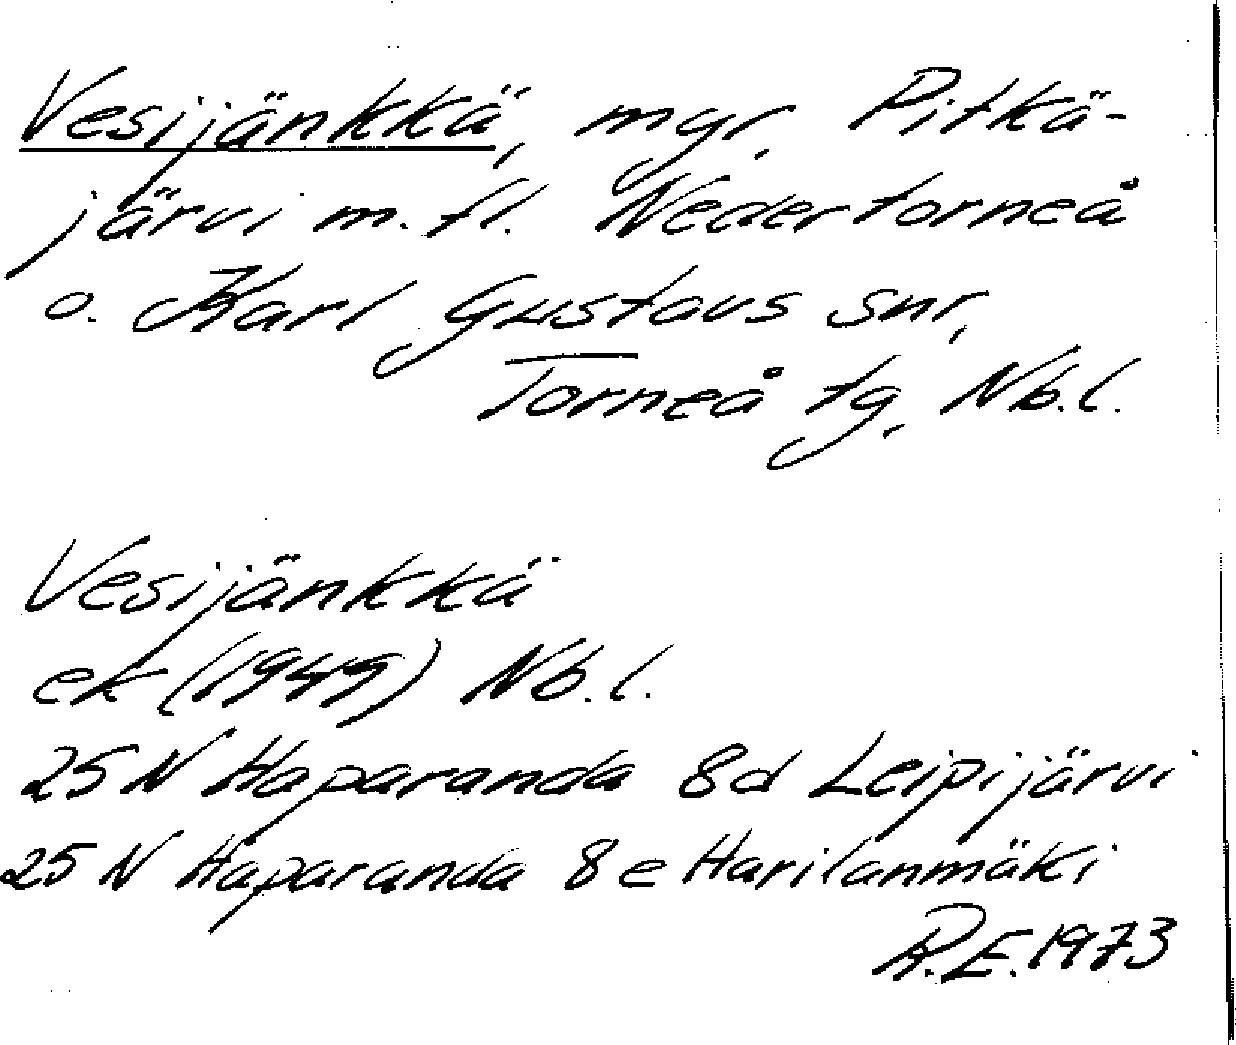 Vesijänkkä, myr, Pitkä-
järvi m.fl. Nedertorneå
o. Karl Gustavs snr,
Torneå tg, Nb.l.
Vesijänkkä
ek (1949) Nb.l.
25 N Haparanda 8d Leipijärvi
25 N Haparanda 8e Harilanmäki
R.E. 1973